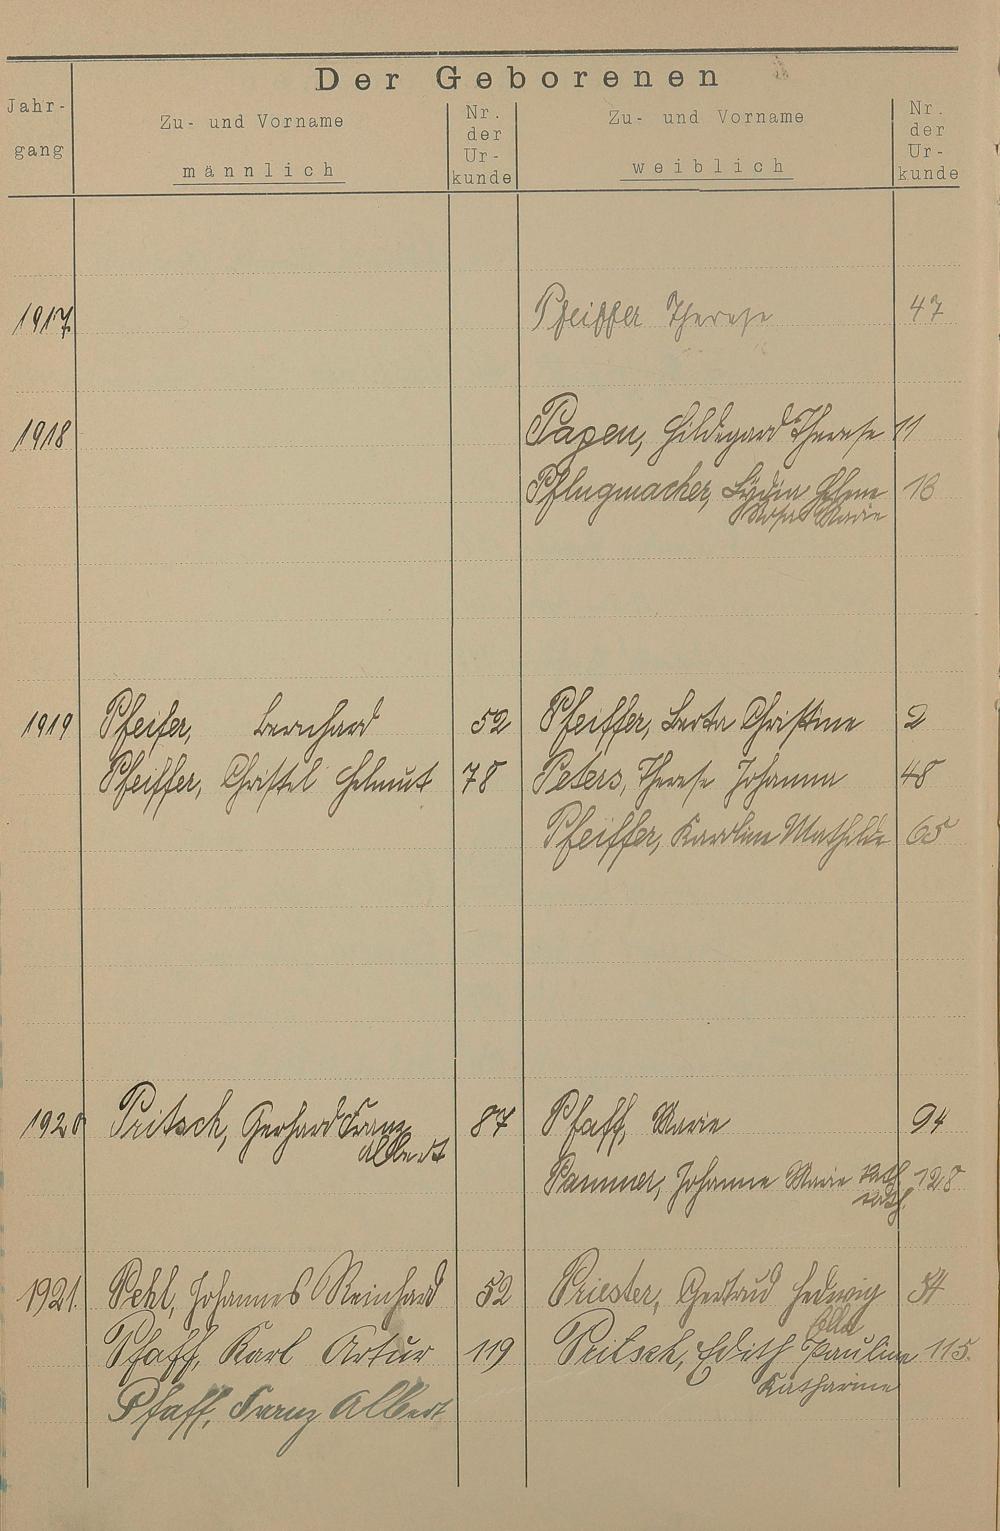 Der Geborenen
Jahr-
gang
Zu- und Vorname
männlich
Nr.
der
Ur-
kunde
Zu- und Vorname
weiblich
Nr.
der
Ur-
kunde
1917 Pfeiffer Therese 47
1918 Papen, Hildegard Therese 11
Pflugmacher, Lydia Helene 13
Rosa Marie
1919 Pfeifer, Bernhard 52 Pfeiffer, Berta Christine 2
Pfeiffer, Christel Helmut 78 Peters, Therese Johanna 48
Pfeiffer, Karoline Mathilde 65
1920 Pritsch, Gerhard Franz 87 Pfaff, Marie 94
Albert
Pammer, Johanna Marie 128
1921. Pehl, Johannes Reinhard 52 Priester, Gertrud Hedwig 34
Ella
Pfaff, Karl Artur 119 Pritsch, Edith Pauline 115.
Katharine
Pfaff, Franz Albert